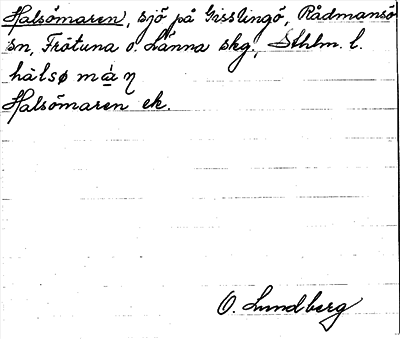 Halsömaren, sjö på Gisslingö, Rådmansö
sn, Frötuna o. Länna skg., Sthlm. l.
hàlsø må̀ ŋ
Halsömaren ek.
O. Lundberg